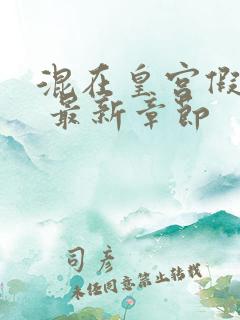 混在皇宫假
最新章节
司彦
未经同意禁止转载